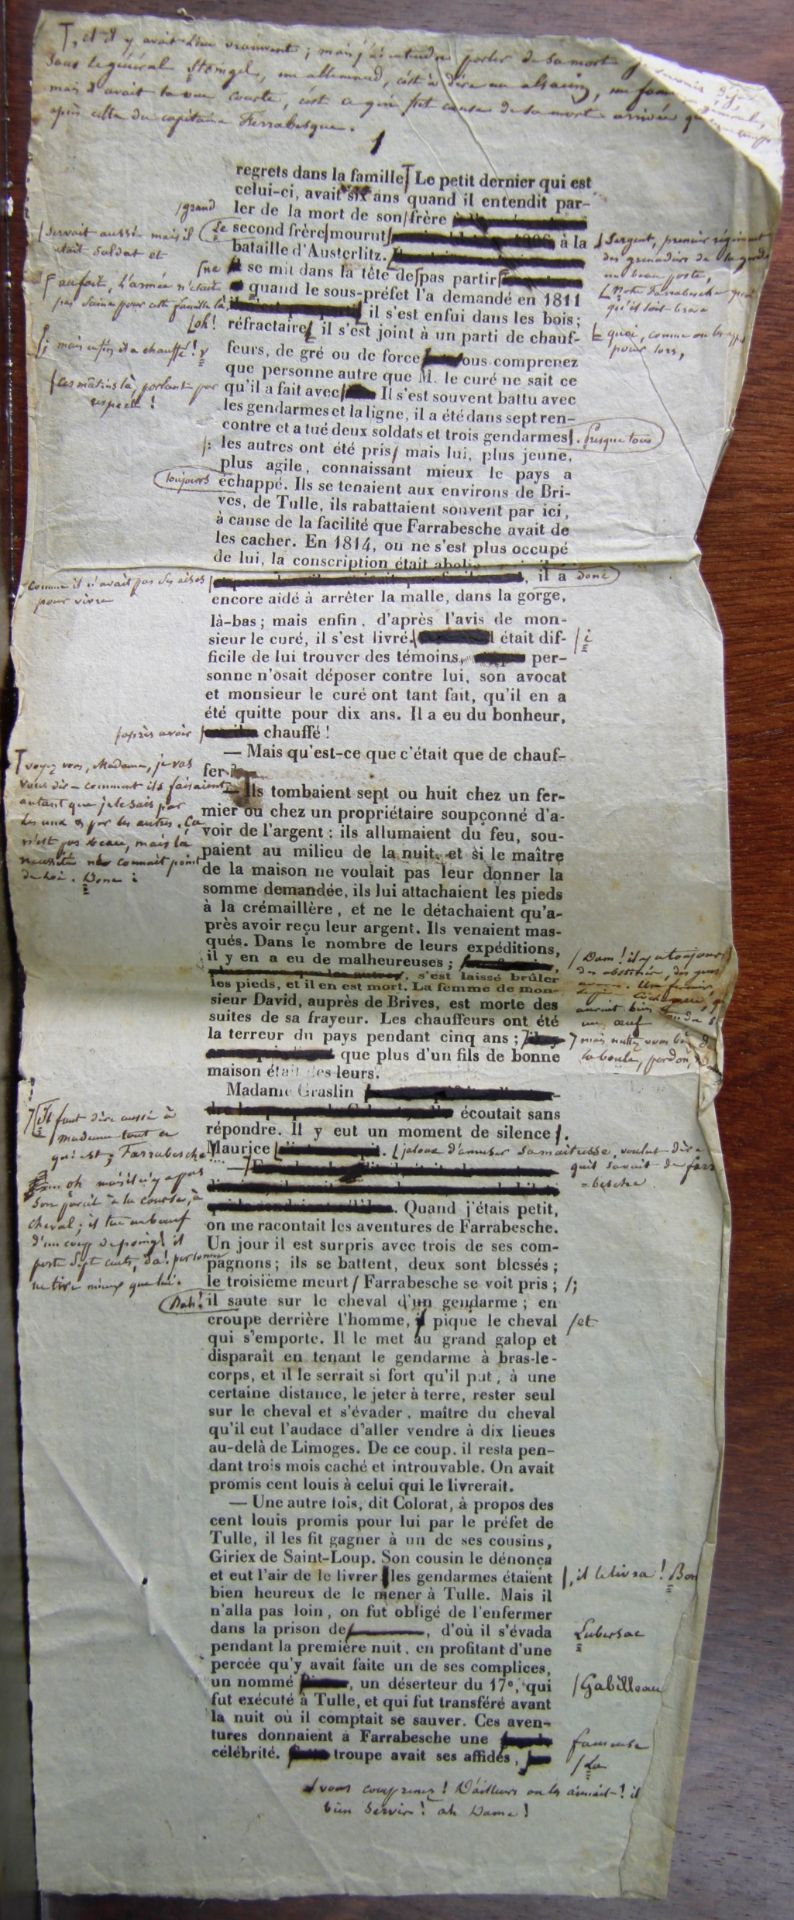 T, et il y avait vraiment ; mais j'ai entendu parler de sa mort
sous le général Stengel, un allemand, c'est à dire un alsacien,
mais il avait la vue courte, c'est ce qui fut cause de sa mort arrivée
après celle du capitaine Farrabesque.
1
regrets dans la famille Le petit dernier qui est
celui-ci, avait six ans quand il entendit par-
/grand
ler de la mort de son/frère
/servait aussi mais il
était soldat et
Le
second frère/mourut/ à la
/ Sergent, premier régiment
des grenadiers de la garde
un beau poste,
bataille d'Austerlitz.
/ne
se mit dans la tête de/pas partir/
quand le sous-préfet l'a demandé en 1811
il s'est enfui dans les bois;
/oh!
réfractaire/ il s'est joint à un parti de chauf-
/ quoi, comme on
pour lors,
/; mais enfin il a chauffé !
feurs, de gré ou de force ous comprenez
que personne autre que M. le curé ne sait ce
/ces matins là, parlant par
respect !
qu'il a fait avec Il s'est souvent battu avec
les gendarmes et la ligne, il a été dans sept ren-
contre et a tué deux soldats et trois gendarmes/. Presque tous
/: les autres ont été pris/ mais lui, plus jeune,
plus agile, connaissant mieux le pays a
toujours
échappé. Ils se tenaient aux environs de Bri-
ves, de Tulle, ils rabattaient souvent par ici,
à cause de la facilité que Farrabesche avait de
les cacher. En 1814, on ne s'est plus occupé
de lui, la conscription était abolie
/comme il n'avait pas ses aises
pour vivre
, il a donc
encore aidé à arrêter la malle, dans la gorge,
là-bas; mais enfin, d'après l'avis de mon-
sieur le curé, il s'est livré. l était dif- /i
ficile de lui trouver des témoins, per-
sonne n'osait déposer contre lui, son avocat
et monsieur le curé ont tant fait, qu'il en a
été quitte pour dix ans. Il a eu du bonheur,
/après avoir
chauffé !
— Mais qu'est-ce que c'était que de chauf-
fer
T voyez vous, Madame, je vas
vous dire comment ils faisaient
autant que je le sais par
les uns & par les autres. Ça
n'est pas beau, mais la
nécessité ne connaît point
de loi. Donc :
— Ils tombaient sept ou huit chez un fer-
mier ou chez un propriétaire soupçonné d'a-
voir de l'argent; ils allumaient du feu, sou-
paient au milieu de la nuit, et si le maître
de la maison ne voulait pas leur donner la
somme demandée, ils lui attachaient les pieds
à la crémaillère, et ne le détachaient qu'a-
près avoir reçu leur argent. Ils venaient mas-
qués. Dans le nombre de leurs expéditions,
il y en a eu de malheureuses;
/ Dam ! il y a toujours
des obstinés, des gens
Un fermier,
aurait bien
un œuf
, s'est laissé brûler
les pieds, et il en est mort. La femme de mon-
sieur David, auprès de Brives, est morte des
suites de sa frayeur. Les chauffeurs ont été
la terreur du pays pendant cinq ans;
7 mais mettez vous bien
la boule, pardon,
que plus d'un fils de bonne
maison était des leurs.
Madame Graslin
écoutait sans
répondre. Il y eut un moment de silence/.
Maurice / jaloux d'amuser sa maîtresse, voulut dire
qu'il savait de Farra
-besche.
7 Il faut dire aussi à
madame tout ce
qui est Farrabesche
oh mais il n'y a pas
son pareil à la course, à
cheval; il tue un bœuf
d'un coup de poing! il
porte sept cents, da! personne
ne tire mieux que lui.
. Quand j'étais petit,
on me racontait les aventures de Farrabesche.
Un jour il est surpris avec trois de ses com-
pagnons; ils se battent, deux sont blessés;
le troisième meurt/ Farrabesche se voit pris; /;
Bah! il saute sur le cheval d'un gendarme; en
croupe derrière l'homme, il pique le cheval /et
qui s'emporte. Il le met au grand galop et
disparaît en tenant le gendarme à bras-le-
corps, et il le serrait si fort qu'il put, à une
certaine distance, le jeter à terre, rester seul
sur le cheval et s'évader, maître du cheval
qu'il eut l'audace d'aller vendre à dix lieues
au-delà de Limoges. De ce coup, il resta pen-
dant trois mois caché et introuvable. On avait
promis cent louis à celui qui le livrerait.
— Une autre fois, dit Colorat, à propos des
cent louis promis pour lui par le préfet de
Tulle, il les fit gagner à un de ses cousins,
Giriex de Saint-Loup. Son cousin le dénonça
et eut l'air de le livrer/ les gendarmes étaient /, il le livra ! Bon
bien heureux de le mener à Tulle. Mais il
n'alla pas loin, on fut obligé de l'enfermer
dans la prison de , d'où il s'évada Lubersac
pendant la première nuit, en profitant d'une
percée qu'y avait faite un de ses complices,
un nommé , un déserteur du 17e, qui /Gabilleau
fut exécuté à Tulle, et qui fut transféré avant
la nuit où il comptait se sauver. Ces aven-
tures donnaient à Farrabesche une fameuse
célébrité. troupe avait ses affidés, /La
/ vous comprenez ! D'ailleurs on les aimait ! il
bien servir ! ah Dame !